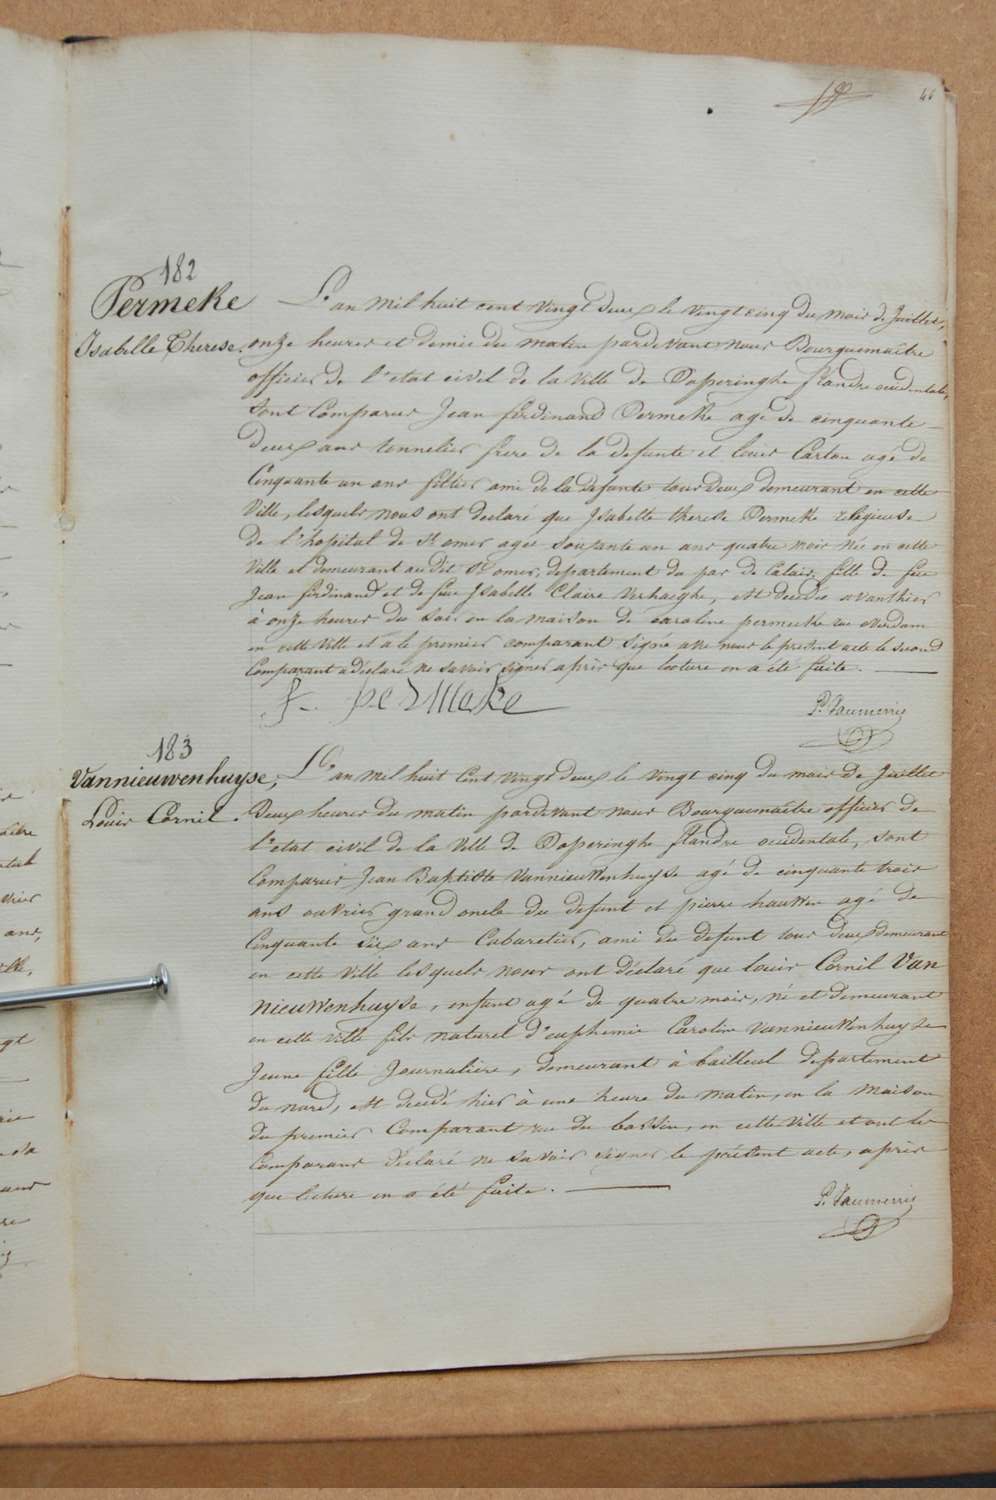 46
182
Permeke
Isabelle Therese.
L'an mil huit cent vingt deux le vingt cinq du mois de Juillet,
onze heures et demie du matin pardevant nous Bourguemaitre
officier de l'etat civil de la Ville de Poperinghe flandre occidentale,
sont Comparus Jean ferdinand Permeke agé de cinquante
deux ans tonnelier frere de la defunte et louis Carton agé de
Cinquante un ans sellier ami de la defunte tous deux demeurant en cette
Ville, lesquels nous ont declaré que Isabelle therese Permeke religieuse
de l'hopital de St omer agée soixante un ans quatre mois née en cette
Ville et demeurant audit St omer, departement du pas de Calais, fille de feu
Jean ferdinand et de feue Isabelle Claire Verhaeghe, est decedée avanthier
à onze heures du soir en la maison de caroline permeke rue overdam
en cette Ville et a le premier comparant signé avec nous le present acte le second
Comparant a déclaré ne savoir signer après que lecture en a été faite.
f. permeke
P. Vaumerris
183
Vannieuwenhuyse,
Louis Cornil.
L'an mil huit Cent vingt deux le vingt cinq du mois de Juillet
Deux heures du matin pardevant nous Bourguemaître officier de
l'etat civil de la Ville de Poperinghe flandre occidentale, sont
Comparus Jean Baptiste Vannieuwenhuyse agé de cinquante trois
ans ouvrier grand oncle du defunt et pierre hauwen agé de
Cinquante six ans Cabaretier, ami du defunt tous deux demeurant
en cette Ville lesquels nous ont déclaré que louis Cornil Van
nieuwenhuyse, enfant agé de quatre mois, né et demeurant
en cette ville fils naturel d'euphemie Caroline vannieuwenhuyse
Jeune fille Journaliere, demeurant à bailleul departement
du nord, est decedé hier à une heure du matin, en la maison
du premier Comparant rue du bassin, en cette Ville et ont les
Comparans déclaré ne savoir signer le présent acte, après
que lecture en a été faite.
P. Vaumerris